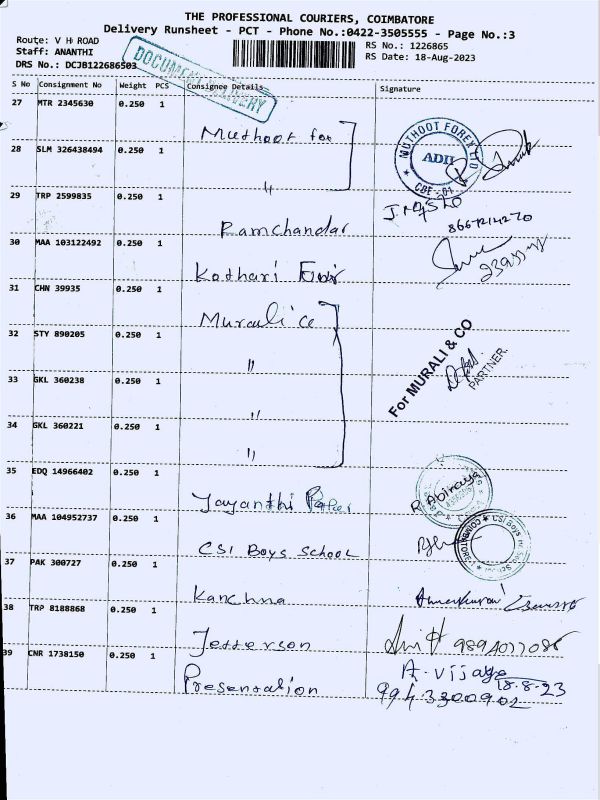 THE PROFESSIONAL COURIERS, COIMBATORE
Delivery Runsheet - PCT - Phone No.:0422-3505555 - Page No.:3
Route: V H ROAD
Staff: ANANTHI
DRS No.: DCJB122686503
RS No.: 1226865
RS Date: 18-Aug-2023
DOCUMENT DELIVERY
S No Consignment No Weight PCS Consignee Details Signature
27 MTR 2345630 0.250 1 Muthoot for
MUTHOOT FOREX LTD
ADII
CBE - 01
28 SLM 326438494 0.250 1 "
29 TRP 2599835 0.250 1 Ramchandar
8667214270
30 MAA 103122492 0.250 1 Kothari
31 CHN 39935 0.250 1 Murali ce
32 STY 890205 0.250 1 "
For MURALI & CO
PARTNER.
33 GKL 360238 0.250 1 "
34 GKL 360221 0.250 1 "
35 EDQ 14966402 0.250 1 Jayanthi Paper
R. Abinaya
36 MAA 104952737 0.250 1 CSI Boys School
CSI Boys
37 PAK 300727 0.250 1 Kanchna
38 TRP 8188868 0.250 1 Jefferson
39 CNR 1738150 0.250 1 Presentation
A. Vijaya
18.8.23
9943300902